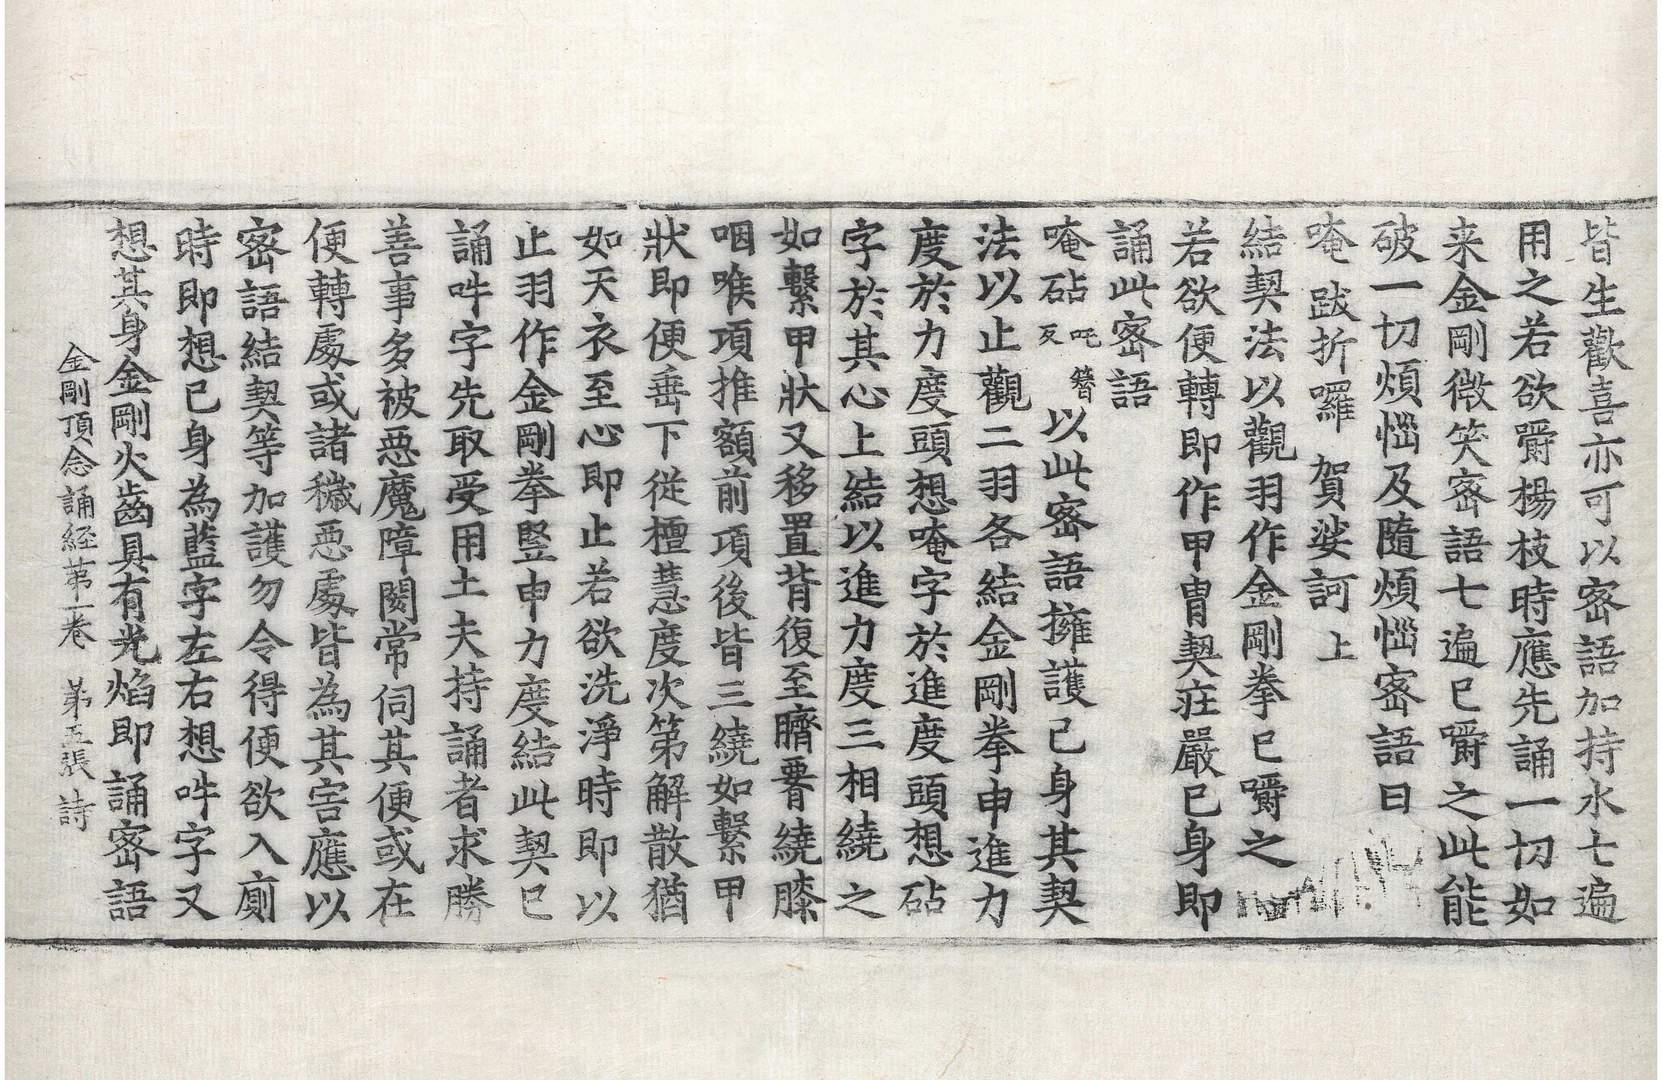 皆生歡喜亦可以密語加持水七遍
用之若欲嚼楊枝時應先誦一切如
来金剛微笑密語七遍已嚼之此能
破一切煩惱及隨煩惱密語曰
唵 跋折囉 賀娑訶 上
結契法以觀羽作金剛拳已嚼之
若欲便轉即作甲冑契莊嚴已身即
誦此密語
唵砧 吒簪反 以此密語擁護己身其契
法以止觀二羽各結金剛拳申進力
度於力度頭想唵字於進度頭想砧
字於其心上結以進力度三相繞之
如繫甲狀又移置背復至臍腰繞膝
咽喉項推額前項後皆三繞如繫甲
狀即便垂下從檀慧度次第解散猶
如天衣至心即止若欲洗淨時即以
止羽作金剛拳竪申力度結此契已
誦吽字先取受用土夫持誦者求勝
善事多被惡魔障閡常伺其便或在
便轉處或諸穢惡處皆為其害應以
密語結契等加護勿令得便欲入廁
時即想已身為藍字左右想吽字又
想其身金剛火齒具有光焰即誦密語
金剛頂念誦経苐一卷 苐五張 詩